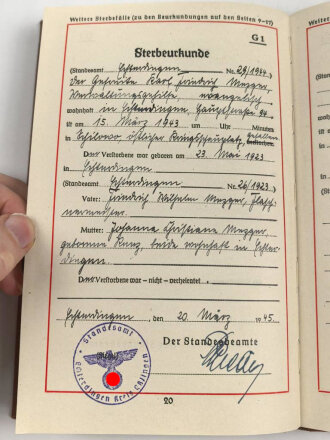 Weitere Sterbefälle (zu den Beurkundungen auf den Seiten 9–17)
G 1
Sterbeurkunde
(Standesamt Echterdingen Nr. 29/1944)
Der Gefreite Karl Friedrich Mezger,
Verwaltungsgehilfe, evangelisch
wohnhaft in Echterdingen, Hauptstraße 94
ist am 15. März 1943 um Uhr Minuten
in östlicher Kriegsschauplatz, gefallen verstorben.
Der Verstorbene war geboren am 23. Mai 1923
in Echterdingen
(Standesamt Echterdingen Nr. 26/1923)
Vater: Friedrich Wilhelm Mezger,
Mutter: Johanna Christiane Mezger,
geborene Kurz, beide wohnhaft in Echter-
dingen.
Der Verstorbene war – nicht – verheiratet.
Echterdingen, den 20. März 1945.
Der Standesbeamte
Standesamt
Echterdingen Kreis Eßlingen
20